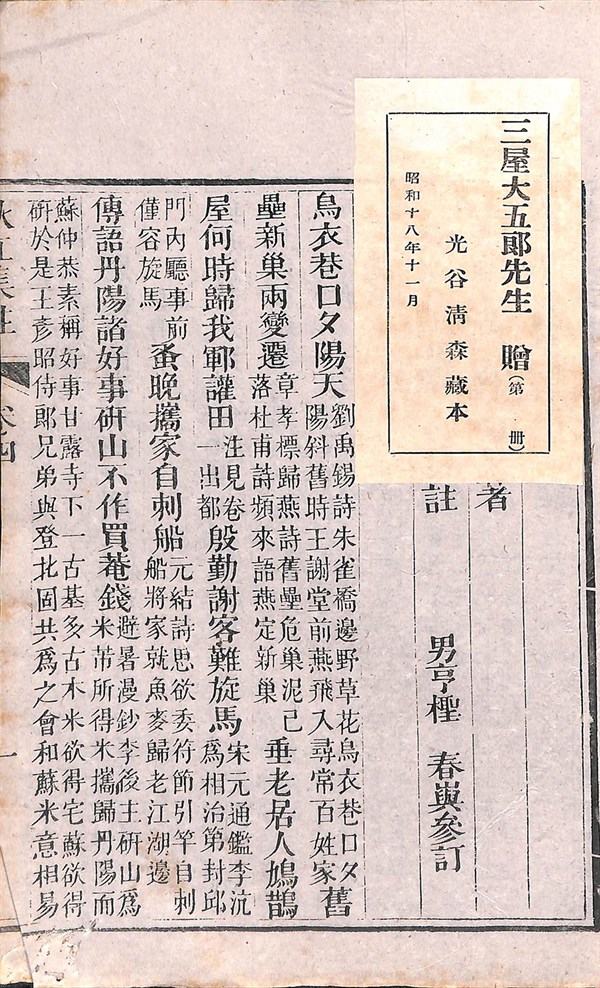 三屋大五郎先生 贈(第 冊)
光谷清森藏本
昭和十八年十一月
著
註 男亨 春嶼參訂
烏衣巷口夕陽天
劉禹錫詩朱雀橋邊野草花烏衣巷口夕
陽斜舊時王謝堂前燕飛入尋常百姓家
舊
壘新巢兩變遷
章孝標歸燕詩舊壘危巢泥已
落杜甫詩頻來語燕定新巢
垂老居人鳩鵲
屋何時歸我鄆讙田
注見卷
一出都
殷勤謝客難旋馬
宋元通鑑李沆
爲相治第封邱
門內廳事前
僅容旋馬
蚤晚攜家自刺船
元結詩思欲委符節引竿自刺
船將家就魚麥歸老江湖邊
傳語丹陽諸好事研山不作買菴錢
避暑漫鈔李後主研山爲
米芾所得米攜歸丹陽而
蘇仲恭素稱好事甘露寺下一古基多古木米欲得宅蘇欲得
研於是王彥昭侍郎兄弟與登北固共爲之會和蘇米意相易
卷四
一